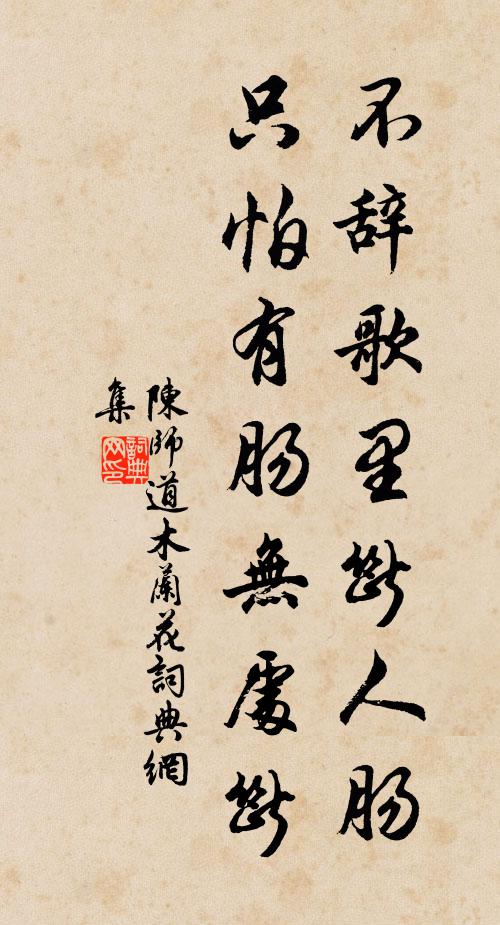 不辞歌里斷人肠
只怕有肠無處斷
陳師道木蘭花詞典網
集
詞典网印